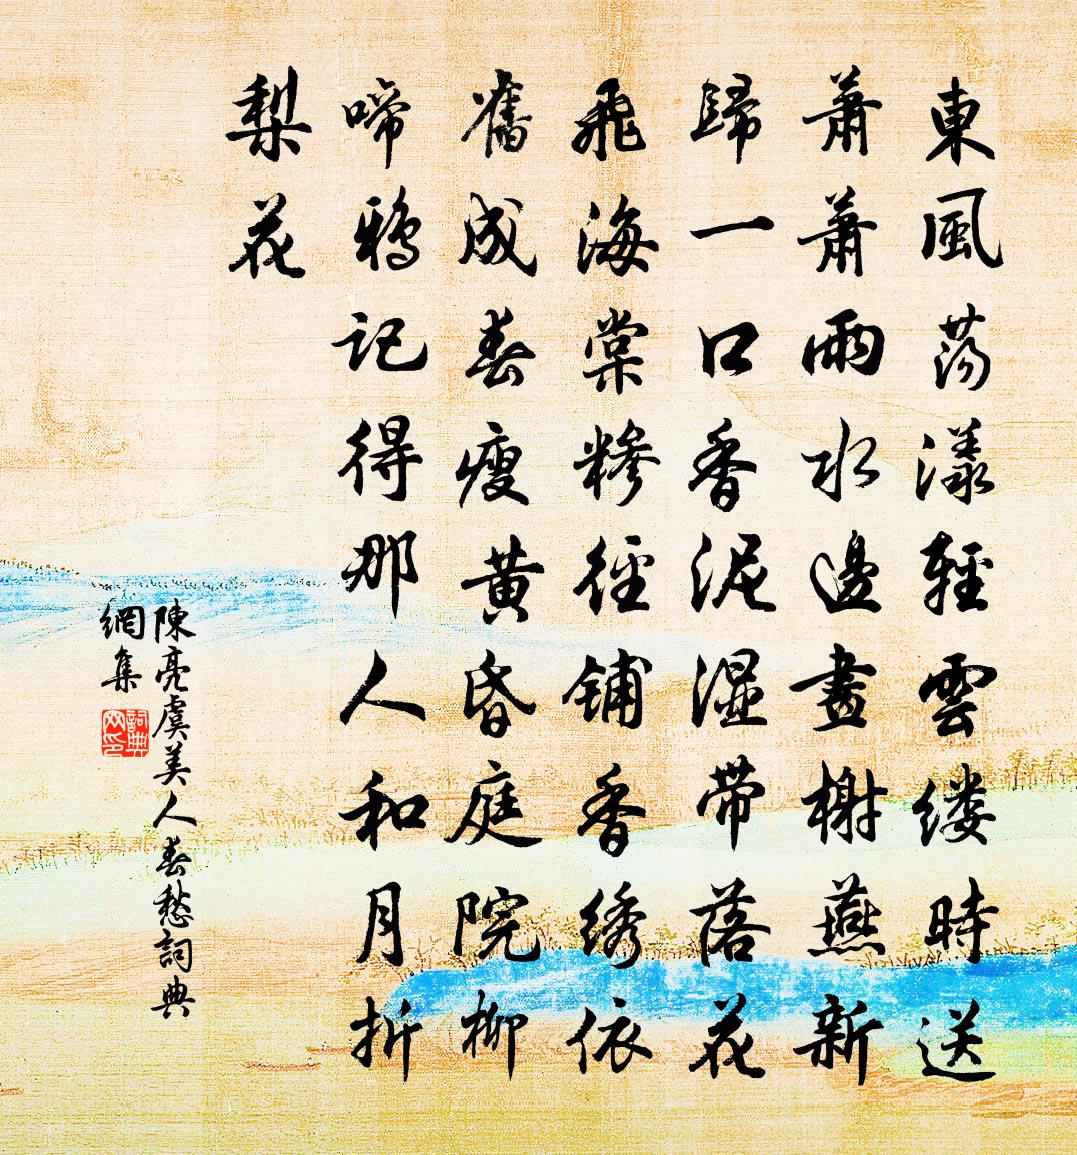 東風蕩漾輕雲缕時送
蕭蕭雨水邊畫榭燕新
歸一口香泥湿带落花
飛海棠糝徑鋪香绣依
舊成春瘦黄昏庭院柳
啼鴉記得那人和月折
梨花
陳亮虞美人春愁詞典
網集
詞典
网印